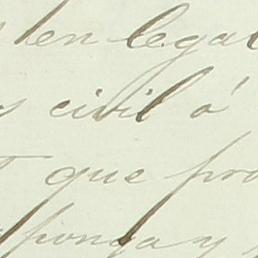 en legal
civil ó
que pro
ponga y